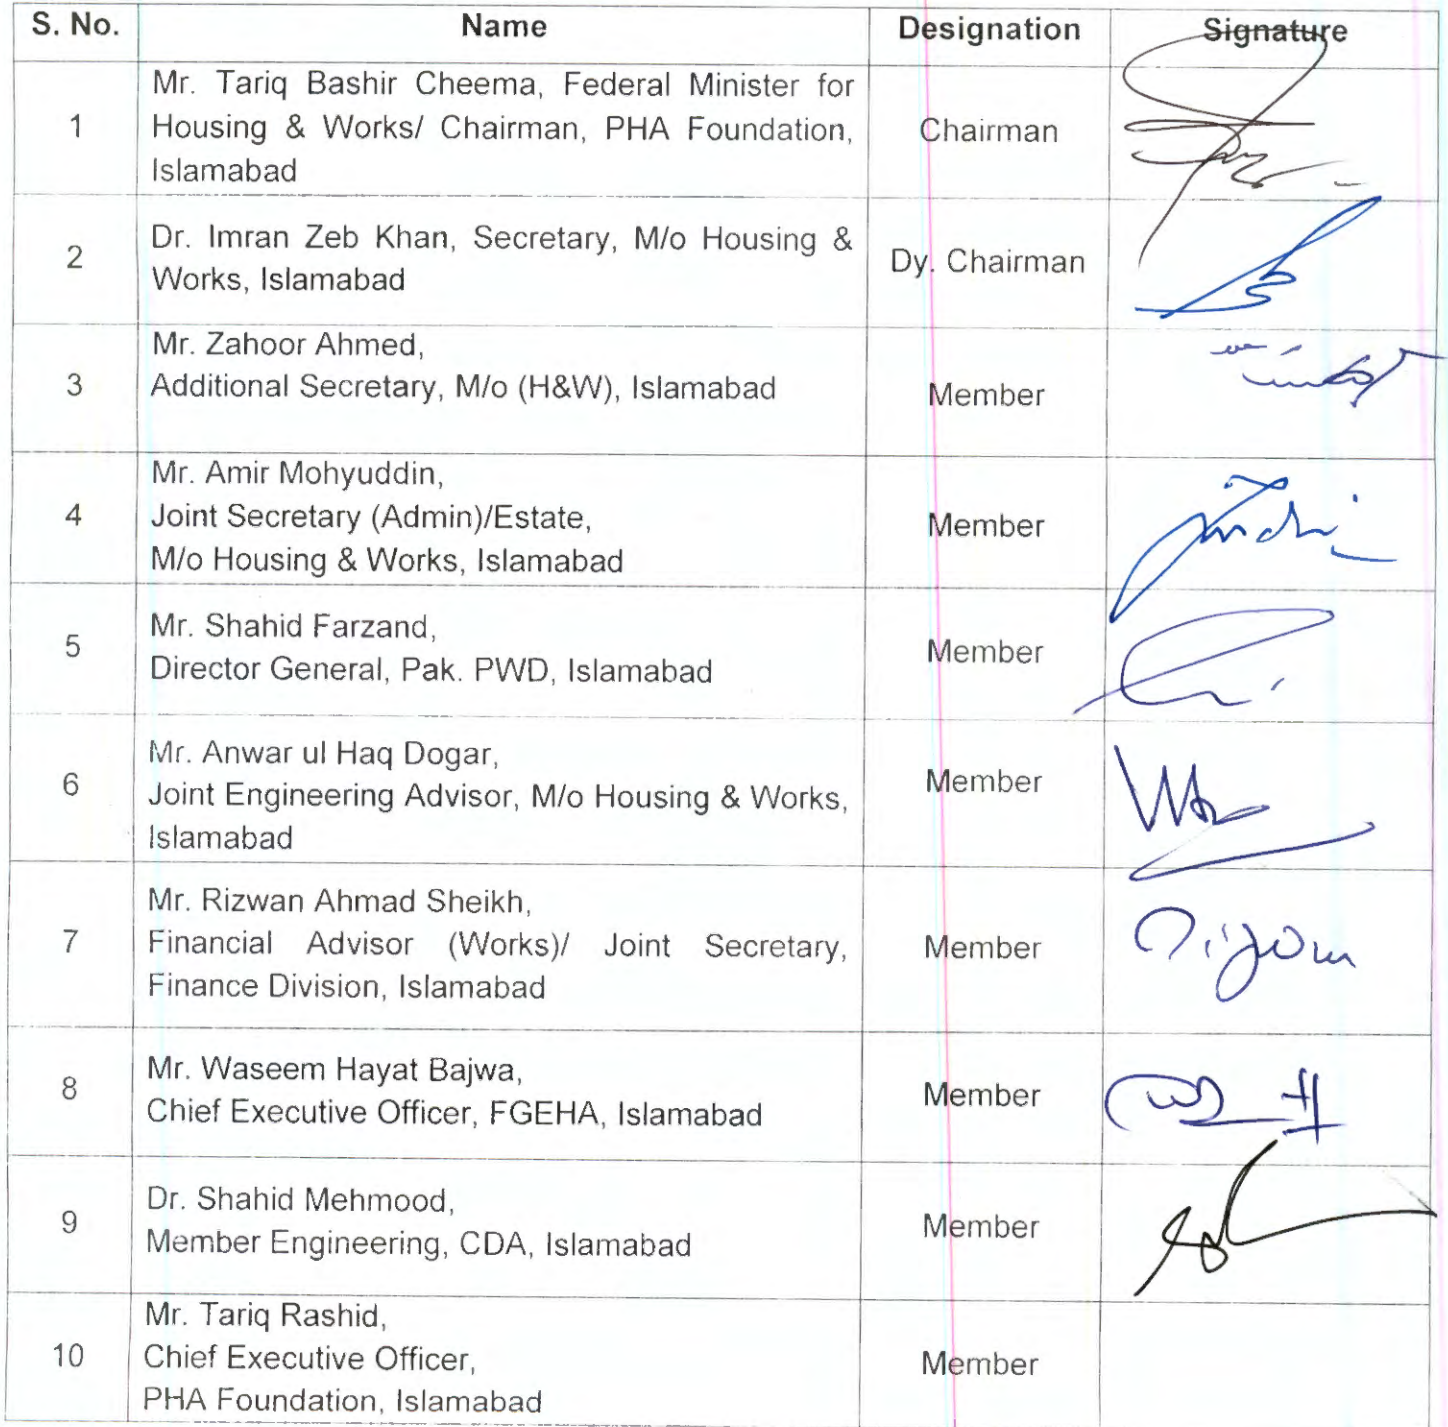 S. No. Name Designation Signature
1 Mr. Tariq Bashir Cheema, Federal Minister for
Housing & Works/ Chairman, PHA Foundation, Chairman
Islamabad
2 Dr. Imran Zeb Khan, Secretary, M/o Housing & Dy. Chairman
Works, Islamabad
Mr. Zahoor Ahmed,
3 Additional Secretary, M/o (H&W), Islamabad Member
Mr. Amir Mohyuddin,
4 Joint Secretary (Admin)/Estate, Member
M/o Housing & Works, Islamabad
5 Mr. Shahid Farzand, Member
Director General, Pak. PWD, Islamabad
Mr. Anwar ul Haq Dogar,
6 Joint Engineering Advisor, M/o Housing & Works, Member
Islamabad
Mr. Rizwan Ahmad Sheikh,
7 Financial Advisor (Works)/ Joint Secretary, Member
Finance Division, Islamabad
8 Mr. Waseem Hayat Bajwa, Member
Chief Executive Officer, FGEHA, Islamabad
9 Dr. Shahid Mehmood, Member
Member Engineering, CDA, Islamabad
Mr. Tariq Rashid,
10 Chief Executive Officer, Member
PHA Foundation, Islamabad